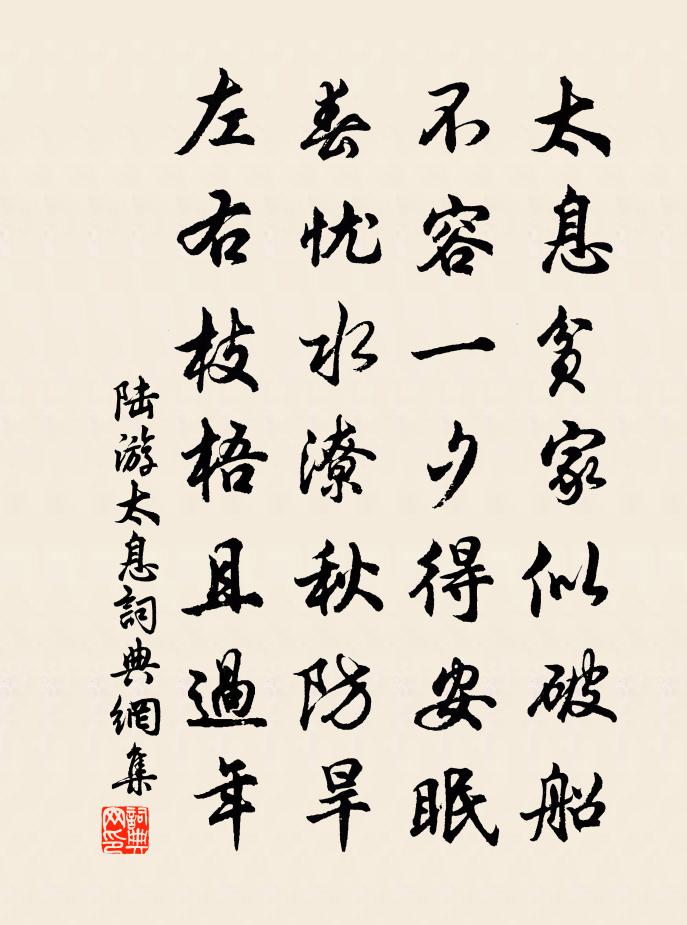 太息贫家似破船
不容一夕得安眠
春忧水潦秋防旱
左右枝梧且過年
陆游太息詞典網集
詞典网印